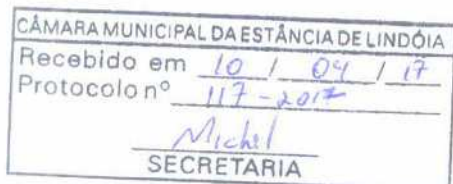 CÂMARA MUNICIPAL DA ESTÂNCIA DE LINDÓIA
Recebido em 10 / 04 / 17
Protocolo nº 117-2017
Michel
SECRETARIA